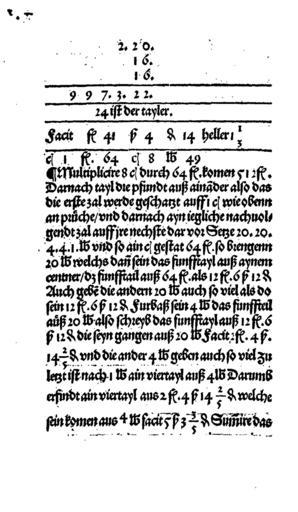 2. 20.
16.
16.
9 9 7. 3. 22.
24 ist der tayler.
Facit fl 41 ß 4 ₰ 14 heller 1 1/3
c 1 fl. 64 c 8 lb 49
¶Multiplicire 8 c durch 64 fl. komen 512 fl.
Darnach tayl die pfundt auß ainãder also das
die erste zal werde geschatzt auff 1 c wie obenn
an prüche/vnd darnach ayn iegliche nachuol-
gendt zal auff jre nechste dar vor Setze 20. 20.
4. 4. 1. lb vnd so ain c gestat 64 fl. so brengenn
20 lb welchs dañ sein das funfftayl auß aynem
centner/dz funfftail auß 64 fl. als 12 fl. 6 ß 12 ₰
Auch gebẽ die andern 20 lb auch so viel als do
sein 12 fl. 6 ß 12 ₰ Furbaß sein 4 lb das funffteil
auß 20 lb also schreyb das funfftayl auß 12 fl. 6
ß 12 ₰ die seyn gangen auß 20 lb Facit 2 fl. 4 ß.
14 2/5 ₰ vnd die ander 4 lb geben auch so viel zu
letzt ist nach 1 lb ain viertayl auß 4 lb Darumb
erfindt ain viertayl aus 2 fl. 4 ß 14 2/5 ₰ welche
sein komen aus 4 lb facit 5 ß 3 3/5 ₰ Sum̃ire das